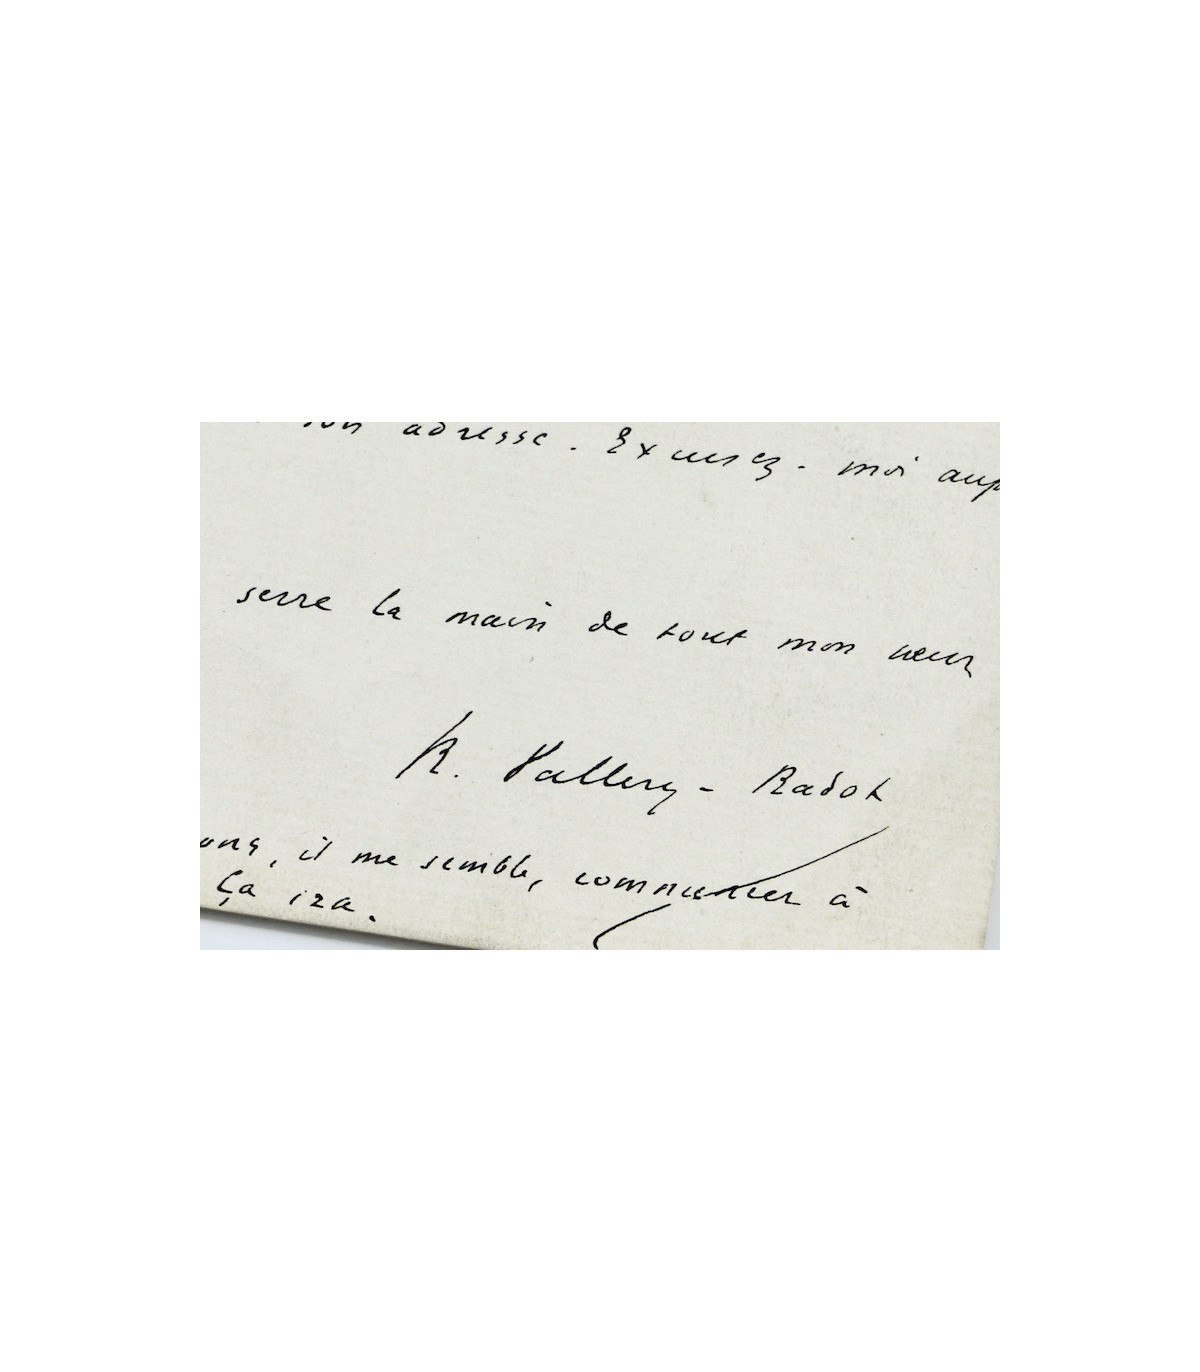 son adresse. Excusez-moi aup
serre la main de tout mon cœur
R. Vallery-Radot
ons, il me semble, commencer à
Ça ira.